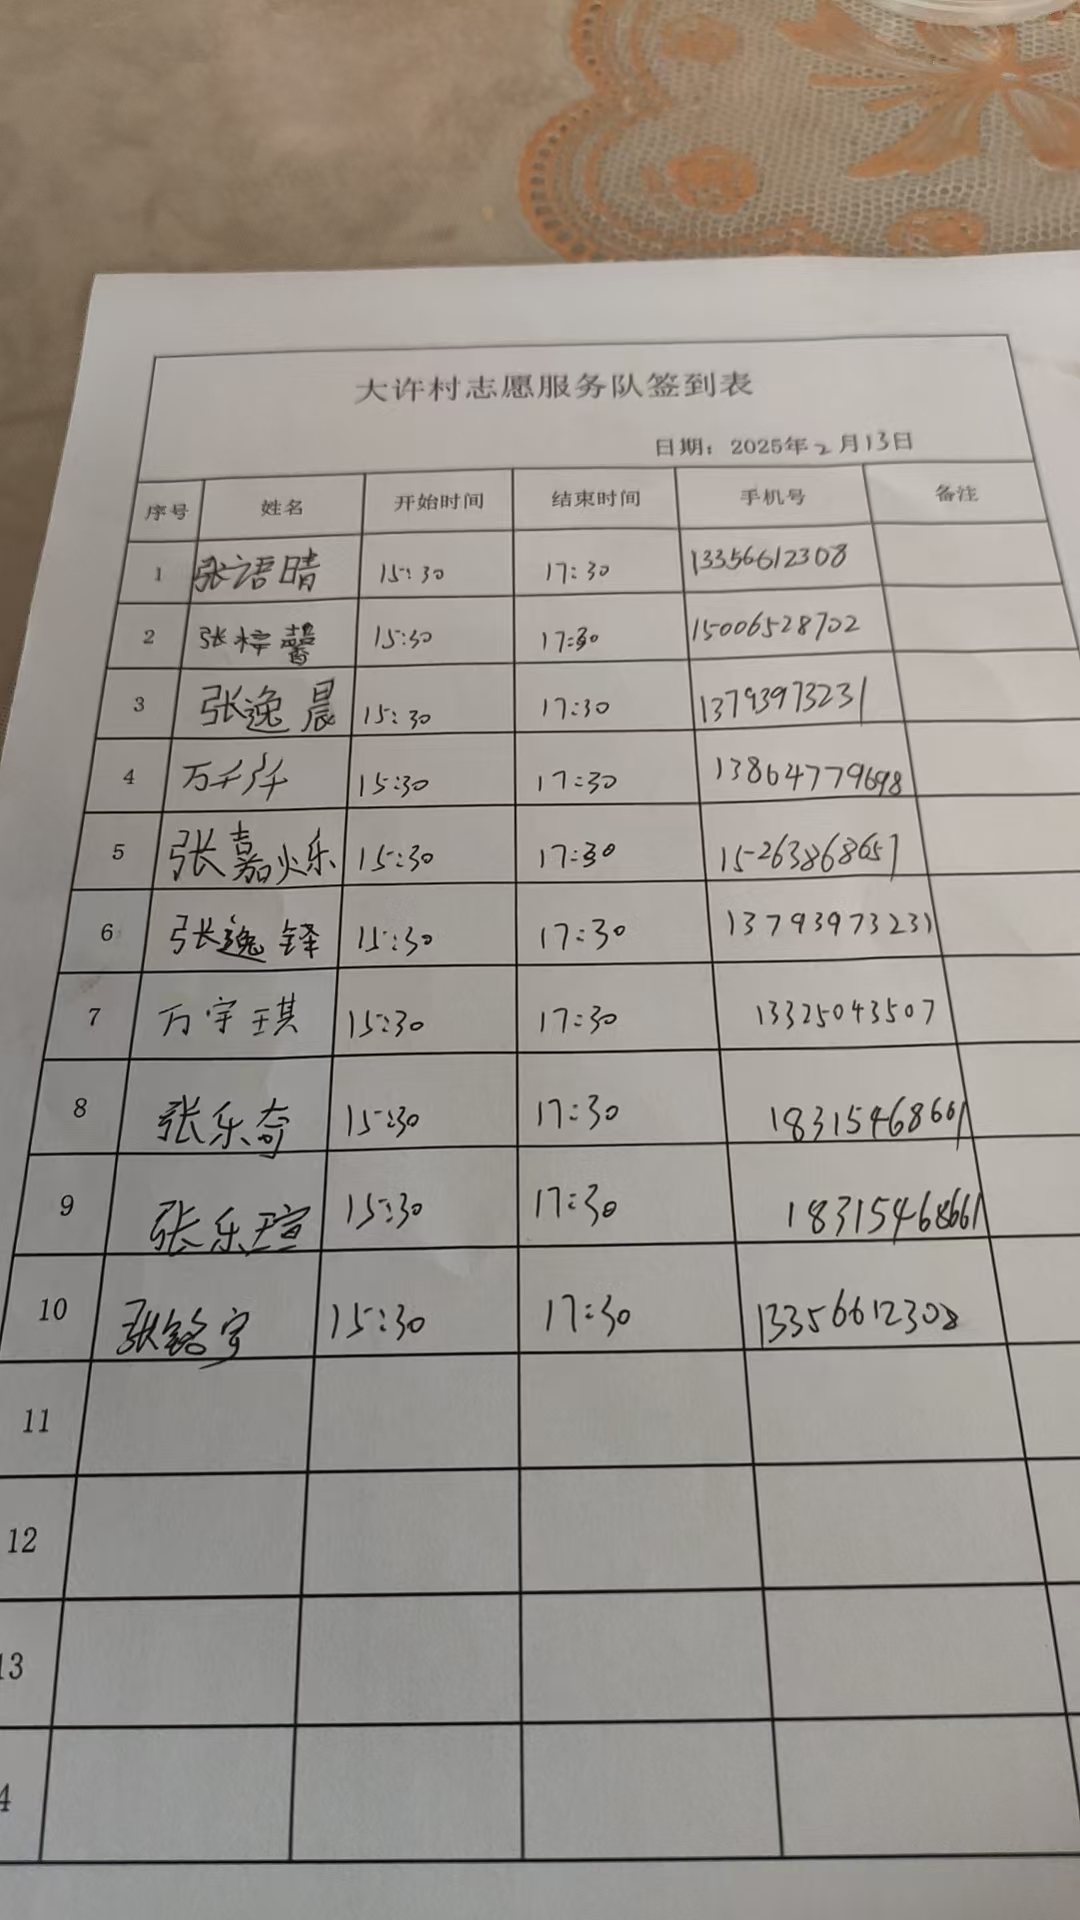 大许村志愿服务队签到表
日期：2025年2月13日
序号 姓名 开始时间 结束时间 手机号 备注
1 张语晴 15:30 17:30 13356612308
2 张梓馨 15:30 17:30 15006528702
3 张逸晨 15:30 17:30 13793973231
4 万千仟 15:30 17:30 13864779698
5 张嘉烁 15:30 17:30 15263868657
6 张逸铎 15:30 17:30 13793973231
7 万宇琪 15:30 17:30 13325043507
8 张乐奇 15:30 17:30 18315468661
9 张乐瑄 15:30 17:30 18315468661
10 张铭宇 15:30 17:30 13356612308
11
12
13
4